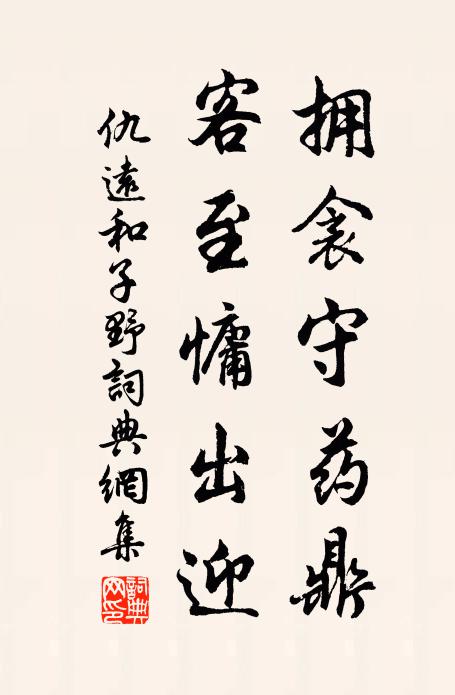 拥衾守药鼎
客至慵出迎
仇遠和子野詞典網集
詞典网印